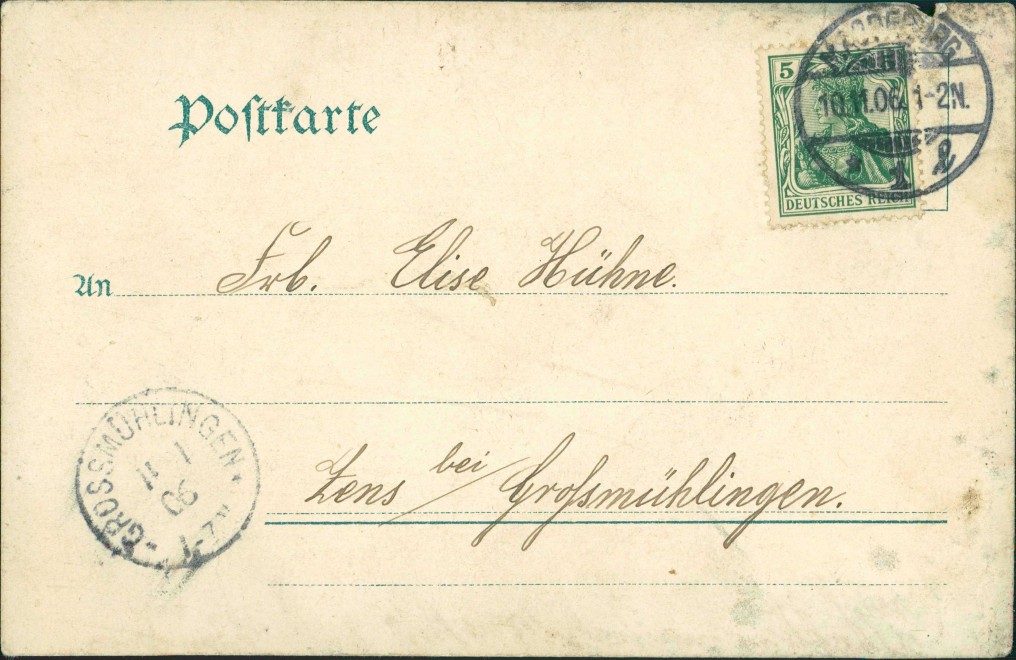 Postkarte
5
DEUTSCHES REICH
MAGDEBURG
10.11.06. 1-2N.
* 1 l
An Frl. Elise Hühne.
Zens bei Großmühlingen.
GROSSMÜHLINGEN
11
06